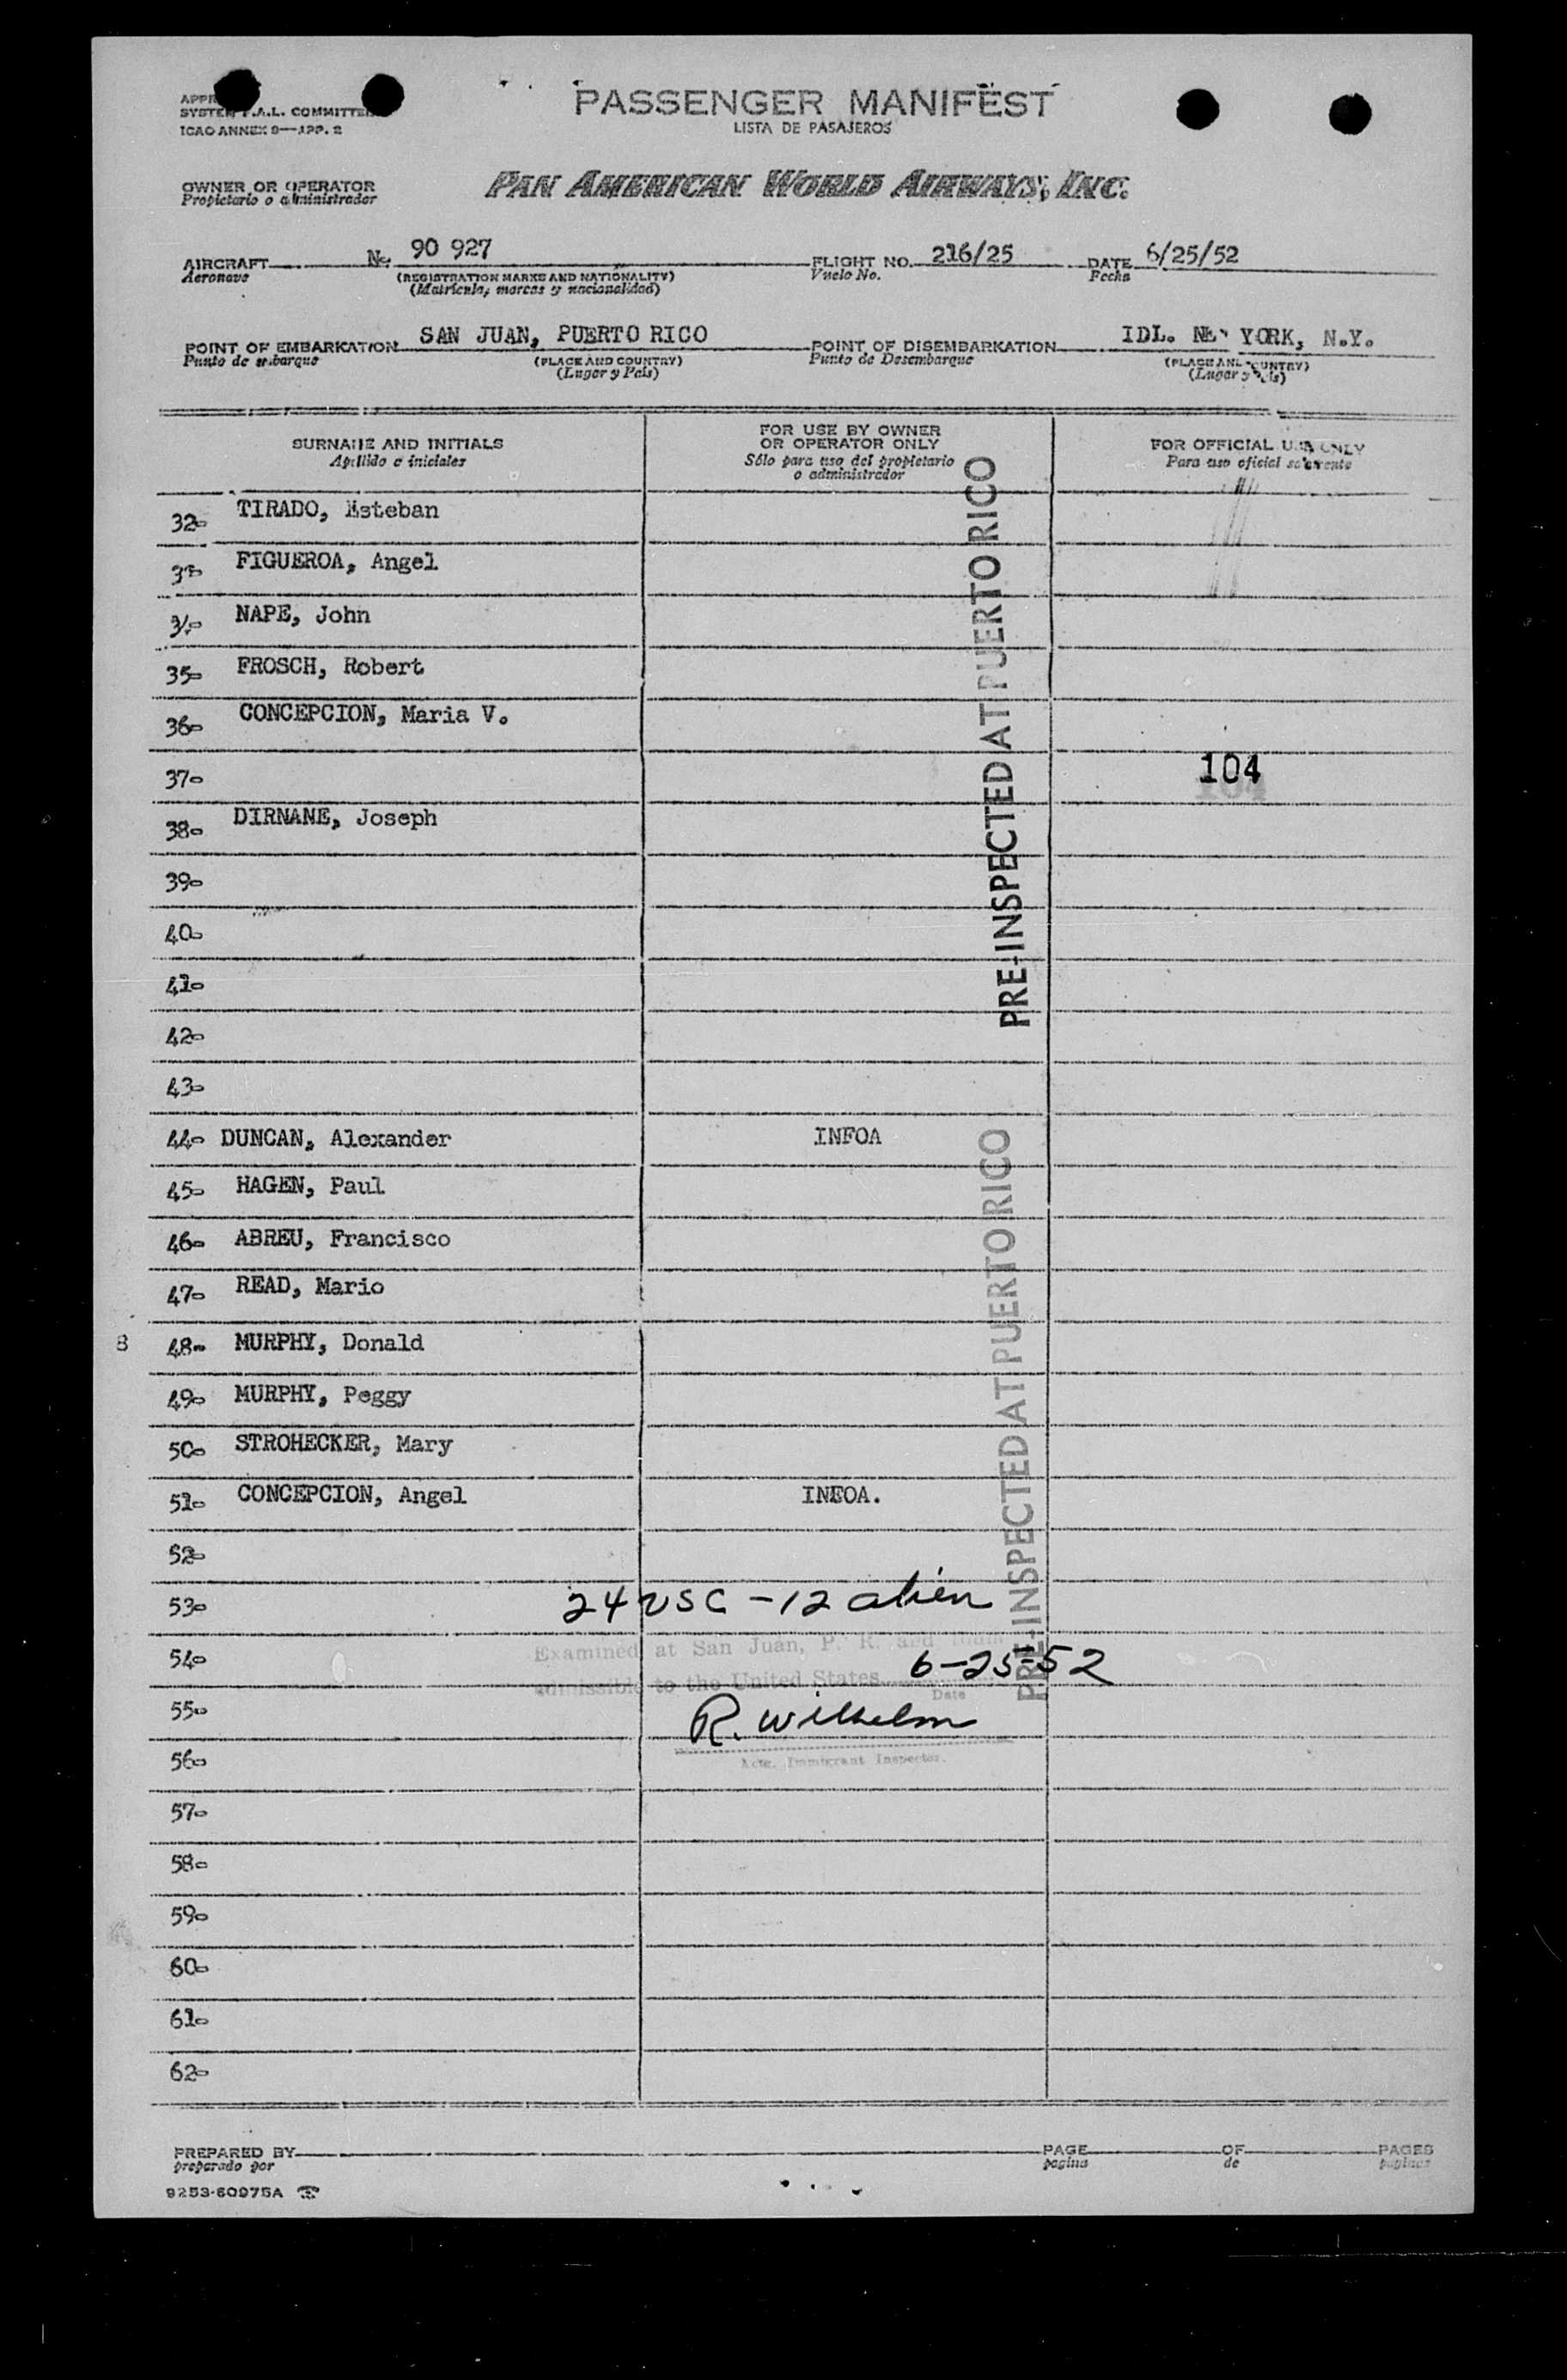 SYSTEM F.A.L. COMMITTEE
ICAO ANNEX 9—APP. 2
PASSENGER MANIFEST
LISTA DE PASAJEROS
OWNER OR OPERATOR
Propietario o administrador
PAN AMERICAN WORLD AIRWAYS, INC.
AIRCRAFT N. 90 927 FLIGHT NO. 216/25 DATE 6/25/52
Aeronave (REGISTRATION MARKS AND NATIONALITY) Vuelo No. Fecha
(Matrícula, marcas y nacionalidad)
POINT OF EMBARKATION SAN JUAN, PUERTO RICO POINT OF DISEMBARKATION IDL. NEW YORK, N.Y.
Punto de embarque (PLACE AND COUNTRY) Punto de Desembarque (PLACE AND COUNTRY)
(Lugar y País) (Lugar y País)
SURNAME AND INITIALS
Apellido e iniciales
FOR USE BY OWNER
OR OPERATOR ONLY
Sólo para uso del propietario
o administrador
FOR OFFICIAL USE ONLY
Para uso oficial solamente
32- TIRADO, Esteban
33- FIGUEROA, Angel
34- NAPE, John
35- FROSCH, Robert
36- CONCEPCION, Maria V.
37- 104
38- DIRNANE, Joseph
39-
40-
41-
42-
43-
PRE-INSPECTED AT PUERTO RICO
44- DUNCAN, Alexander INFOA
45- HAGEN, Paul
46- ABREU, Francisco
47- READ, Mario
8 48- MURPHY, Donald
49- MURPHY, Peggy
50- STROHECKER, Mary
51- CONCEPCION, Angel INFOA.
52-
53- 24 USC - 12 alien
54- Examined at San Juan, P. R. and
admissible to the United States 6-25-52
Date
55- R. Wilhelm
56- Actg. Immigrant Inspector.
PRE-INSPECTED AT PUERTO RICO
57-
58-
59-
60-
61-
62-
PREPARED BY PAGE OF PAGES
preparado por pagina de paginas
9253-60975A